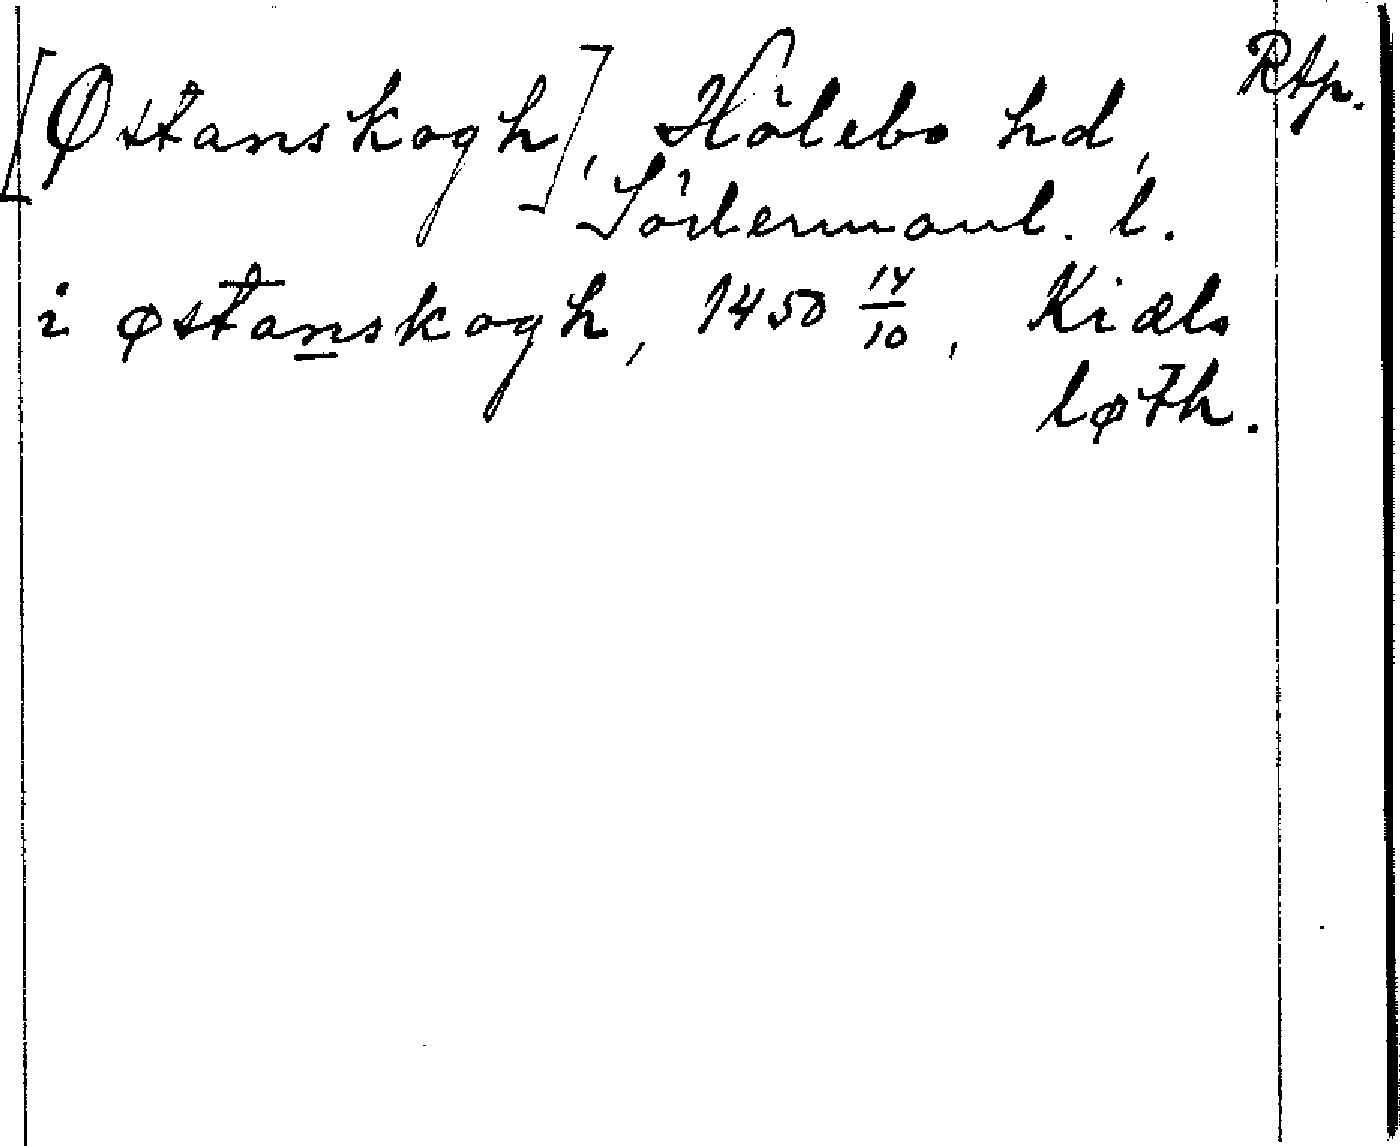 [Østanskogh], Hölebo hd, Rtp.
Södermanl. l.
i østanskogh, 1450 14/10, Kiæls
løth.